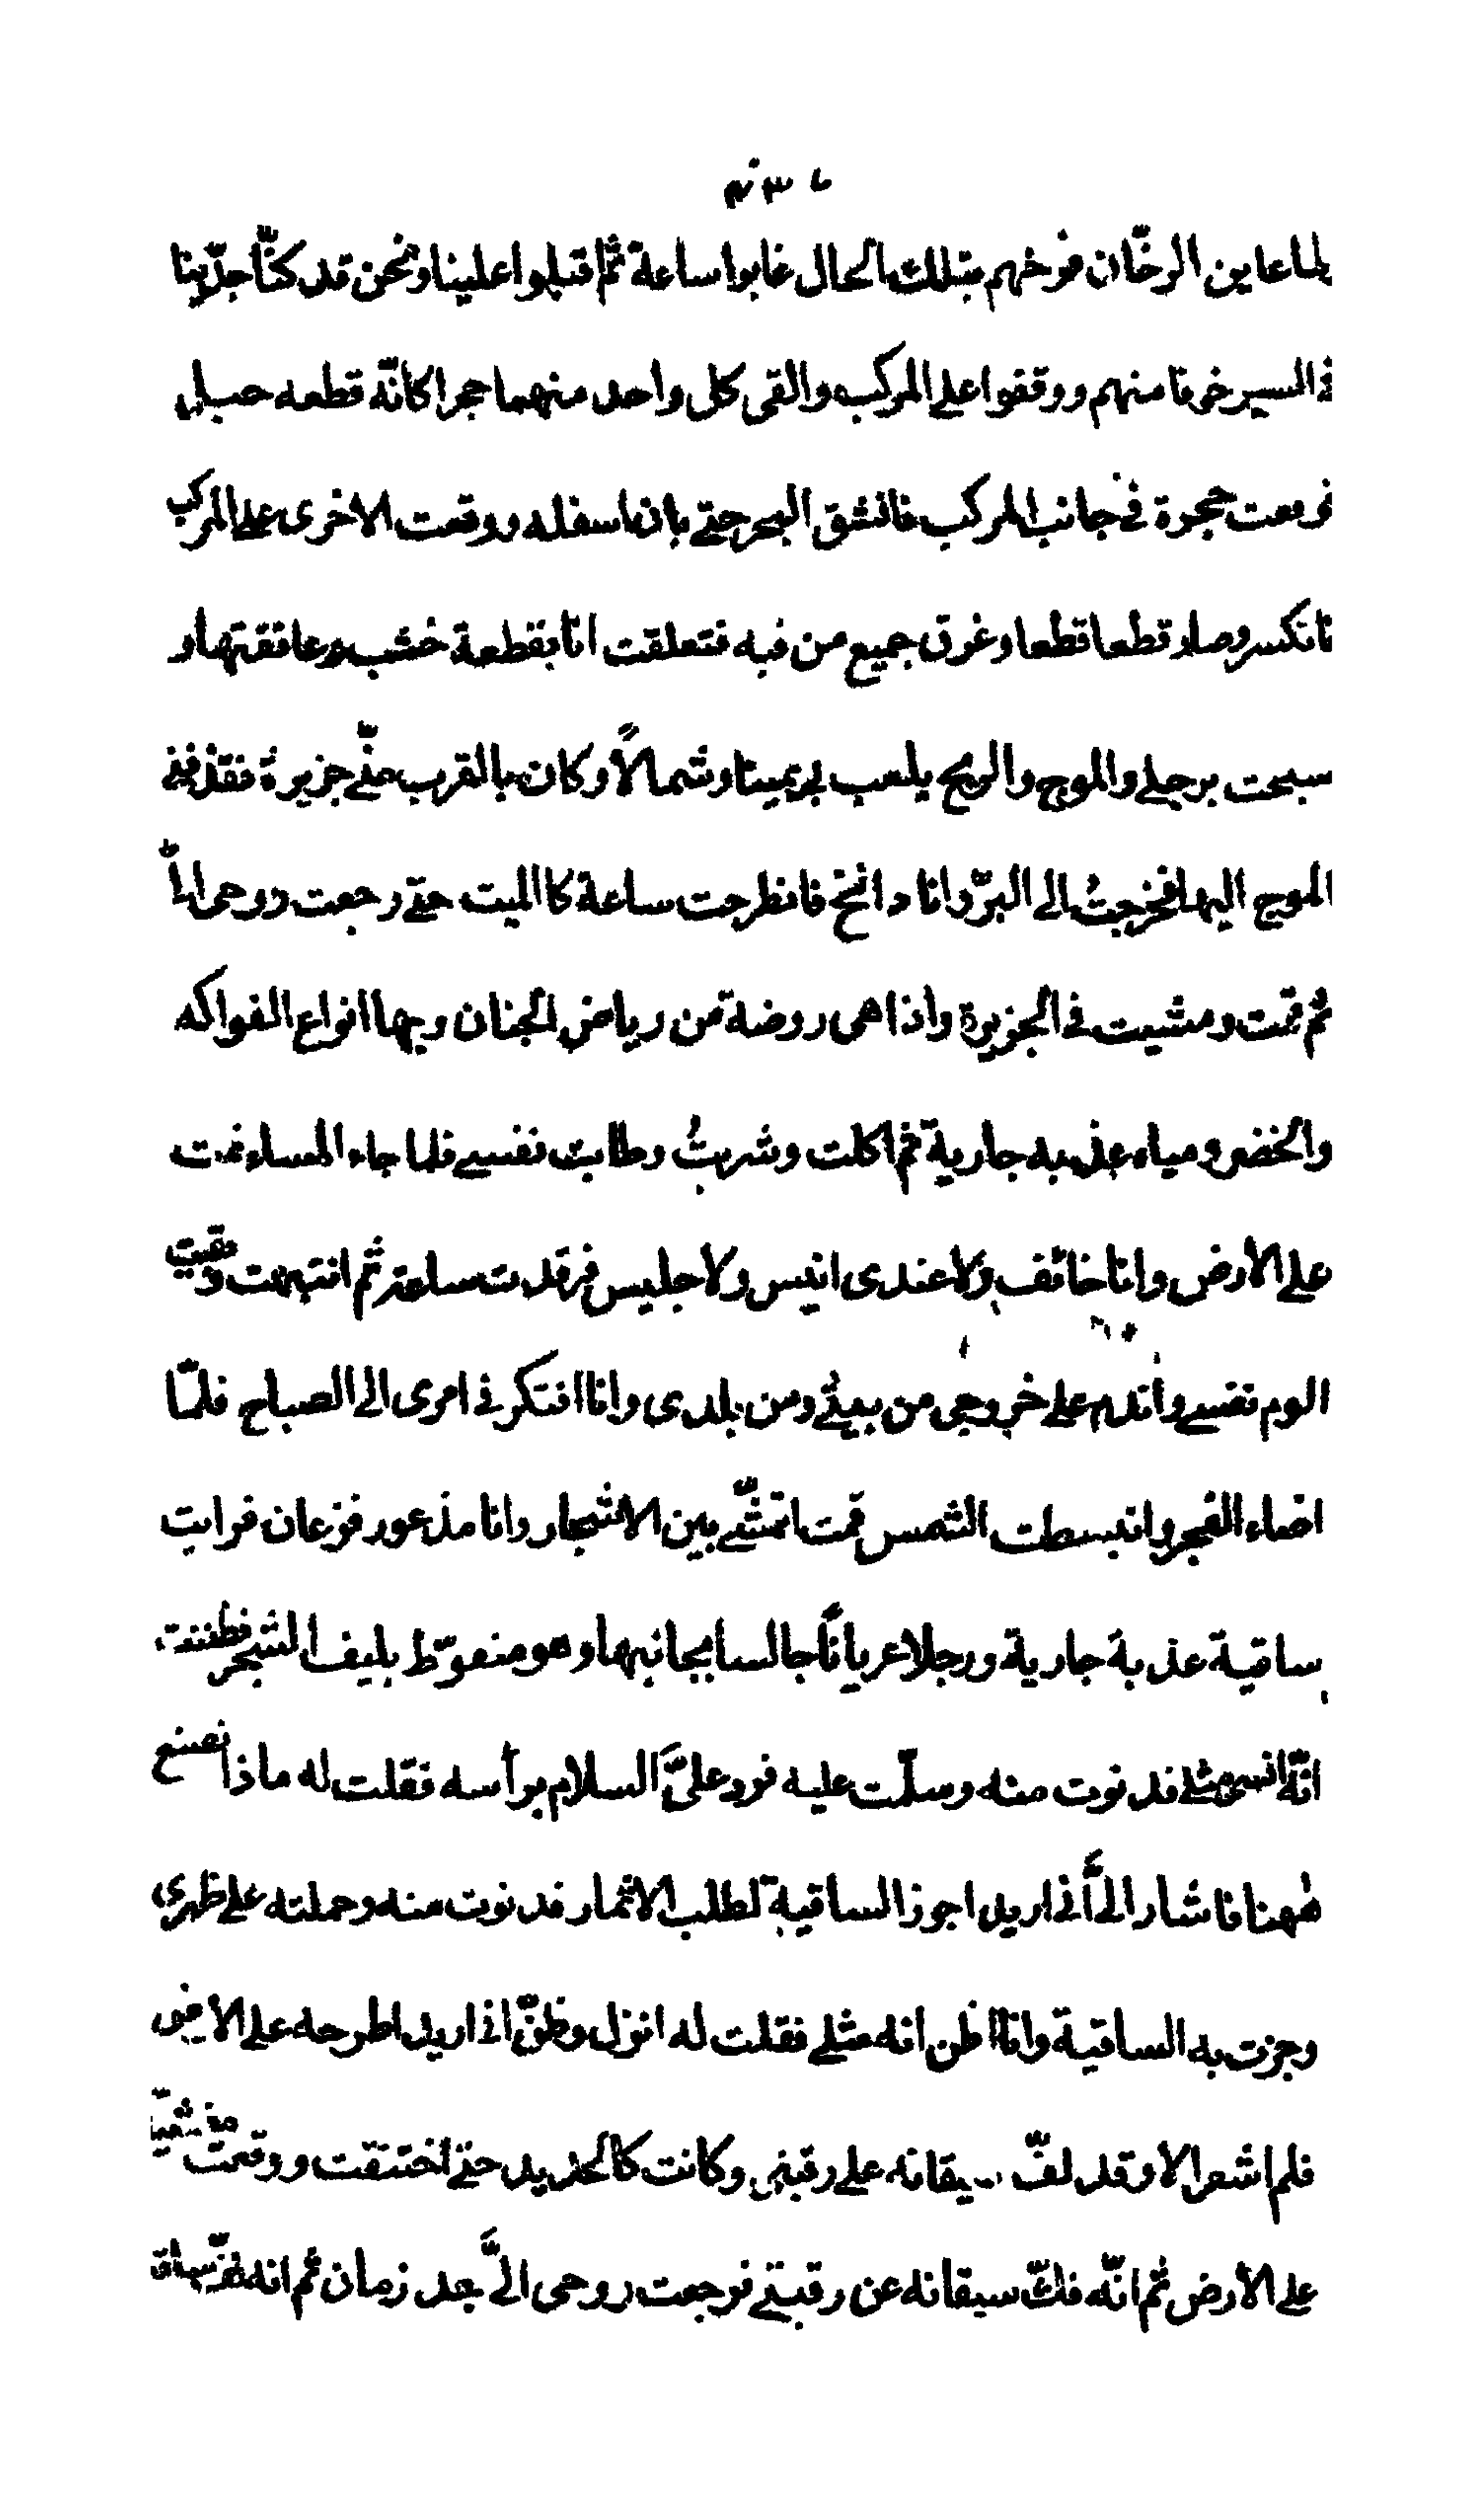 فلما عاين الرخان فرخهم بتلك الحال غابوا ساعة ثم اقبلوا علينا ونحن قد كنّا جدّينا
في السير خوفا منهم ووقفوا على المركب والقى كل واحد منهما حجرا كانّه قطعه جبل
فوقعت حجرة في جانب المركب فانشق البحر حتى بان اسفله ووقعت الاخرى على المركب
فانكسر وصار قطعا قطعا وغرق جميع من فيه فتعلقت انا بقطعة خشب وعانقتها و
سبحت برجلي والموج والريح يلعب بي يمينا وشمالاً وكان بالقرب منّي جزيرة فقذفني
الموج اليها فخرجتُ الى البرّ وانا دائخ فانطرحت ساعة كالميت حتى رجعت روحي اليّ
ثم قمت ومشيت في الجزيرة واذا هى روضة من رياض الجنان وبها انواع الفواكه
والخضر ومياه عذبه جارية ثم اكلت وشربتُ وطابت نفسي فلما جاء المساء نمت
على الارض وانا خائف ولا عندى انيس ولا جليس فرقدت ساعة ثم انتبهت وبقيت
الوم نفسي واندم على خروجى من بيتي ومن بلدى وانا افتكر في امرى الى الصباح فلمّا
اضاء الفجر وانبسطت الشمس قمت اتمشّى بين الاشجار وانا مذعور فزعان فرايت
ساقية عذبة جارية ورجلا عرياناً جالسا بجانبها وهو منغوّط بليف الشجر فظننت
انّه انسى مثلي فدنوت منه وسلّمت عليه فرد عليَّ السلام براسه فقلت له ماذا تصنع
ههنا فاشار اليَّ انّي اريد اجوز الساقية لطلب الاثمار فدنوت منه وحملته على ظهرى
وجزت به الساقية وانا اظن انه مثلي فقلت له انزل وظنّ اني اريد اطرحه على الارض
فلم اشعر الا وقد لفّ سيقانه على رقبتي وكانت كالحديد حتى اختنقت ووقعت مغشيّا
على الارض ثم انّه فكّ سيقانه عن رقبتي فرجعت روحى اليَّ بعد زمان ثم انه